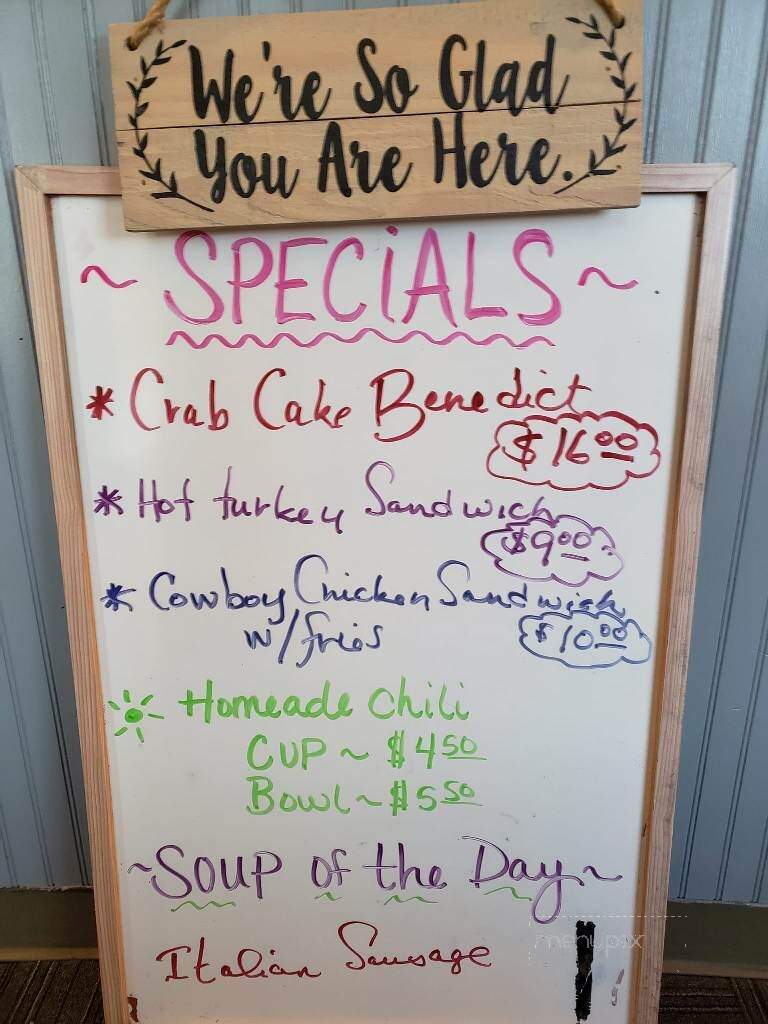 We're So Glad
You Are Here.
~ SPECiALS ~
* Crab Cake Benedict
$16.00
* Hot turkey Sandwich
$9.00
* Cowboy Chicken Sandwich
w/fries
$10.00
Homeade Chili
CUP ~ $4.50
Bowl ~ $5.50
~ Soup of the Day ~
Italian Sausage
menupix